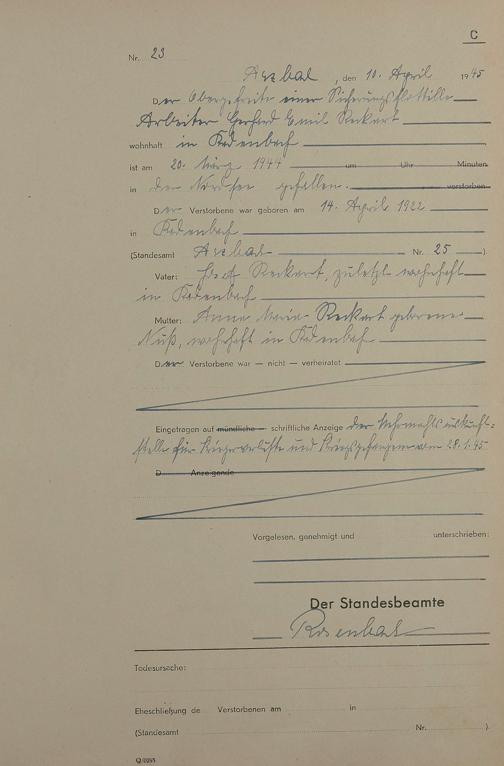 C
Nr. 23
Asbach, den 10. April 1945
Der Obergefreite einer Sicherungsflottille
Arbeiter Gerhard Emil Reckart
wohnhaft in Kedenbach
ist am 20. März 1944 um Uhr Minuten
in der Nordsee gefallen. verstorben.
Der Verstorbene war geboren am 14. April 1922
in
(Standesamt Nr. 25 )
Vater: Reckart, zuletzt wohnhaft
in
Mutter: Anna Maria Reckart geborene
Nuß, wohnhaft in
Der Verstorbene war — nicht — verheiratet
Eingetragen auf mündliche — schriftliche Anzeige der Wehrmachtsauskunft-
stelle für Kriegerverluste und Kriegsgefangene vom 28.1.45
D Anzeigende
Vorgelesen, genehmigt und unterschrieben:
Der Standesbeamte
Todesursache:
Eheschließung de Verstorbenen am in
(Standesamt Nr. )